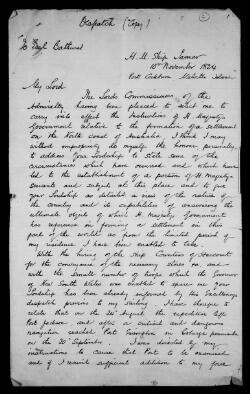 Dispatch (Copy)
To Earl Bathurst
H. M. Ship Tamar
13th November 1824
Port Cockburn Melville Island
My Lord
The Lords Commissioners of the
Admiralty having been pleased to select me to
carry into effect the Instructions of H. Majestys
Government relative to the formation of a settlement
on the North coast of Australia I think I may
without impropriety do myself the honor personally,
to address your Lordship to state some of the
circumstances which have occurred and which have
led to the establishment of a portion of H. Majestys
servants and subjects at this place and to give
your Lordship as detailed a view of the nature of
the country and its capabilities of answering the
ultimate object of which H. Majestys Government
has reference in forming a settlement in this
part of the world as from the limited period of
my residence I have been enabled to take.
With the hiring of the Ship Countess of Harcourt
for the conveyance of the necessary stores &c. and
with the small number of troops which the Governor
of New South Wales was enabled to spare me your
Lordship has been already informed by His Excellencys
dispatch previous to my sailing. I have therefore to
relate that on the 24th August the expedition left
Port Jackson and after a critical and dangerous
navigation reached Port Essington in Cobourg peninsula
on the 20th September. I was directed by my
instructions to cause that Port to be examined
and if I found sufficient addition to my force